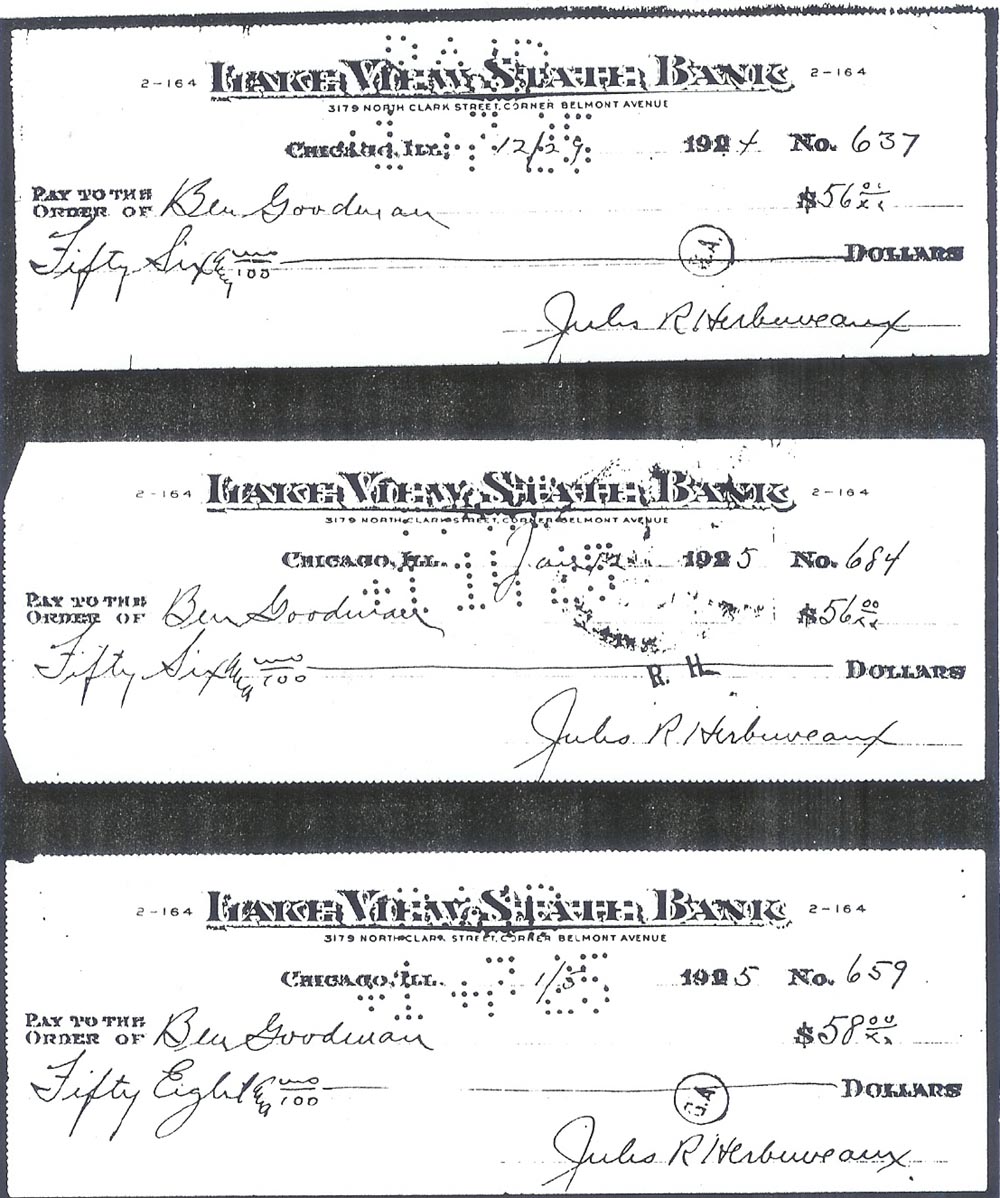 2-164 LAKE VIEW STATE BANK 2-164
3179 NORTH CLARK STREET, CORNER BELMONT AVENUE
CHICAGO, ILL. 12/29 1924 No. 637
PAY TO THE
ORDER OF Ben Goodman $56 00/xx
Fifty Six & no/100 DOLLARS
Jules R Herbuveaux
2-164 LAKE VIEW STATE BANK 2-164
3179 NORTH CLARK STREET, CORNER BELMONT AVENUE
CHICAGO, ILL. Jan 1925 No. 684
PAY TO THE
ORDER OF Ben Goodman $56 00/xx
Fifty Six & no/100 DOLLARS
R. H.
Jules R Herbuveaux
2-164 LAKE VIEW STATE BANK 2-164
3179 NORTH CLARK STREET, CORNER BELMONT AVENUE
CHICAGO, ILL. 1/5 1925 No. 659
PAY TO THE
ORDER OF Ben Goodman $58 00/xx
Fifty Eight & no/100 DOLLARS
Jules R Herbuveaux